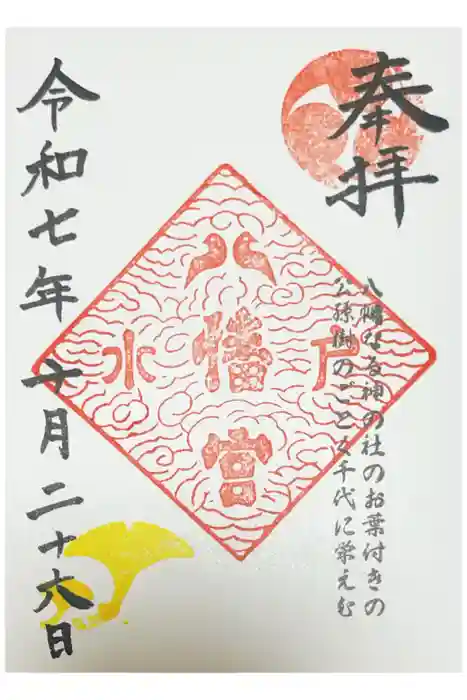 奉拝
八幡なる神の社のお葉付きの
公孫樹のごと久千代に栄えむ
水 八幡宮 戸
令和七年 十月二十六日